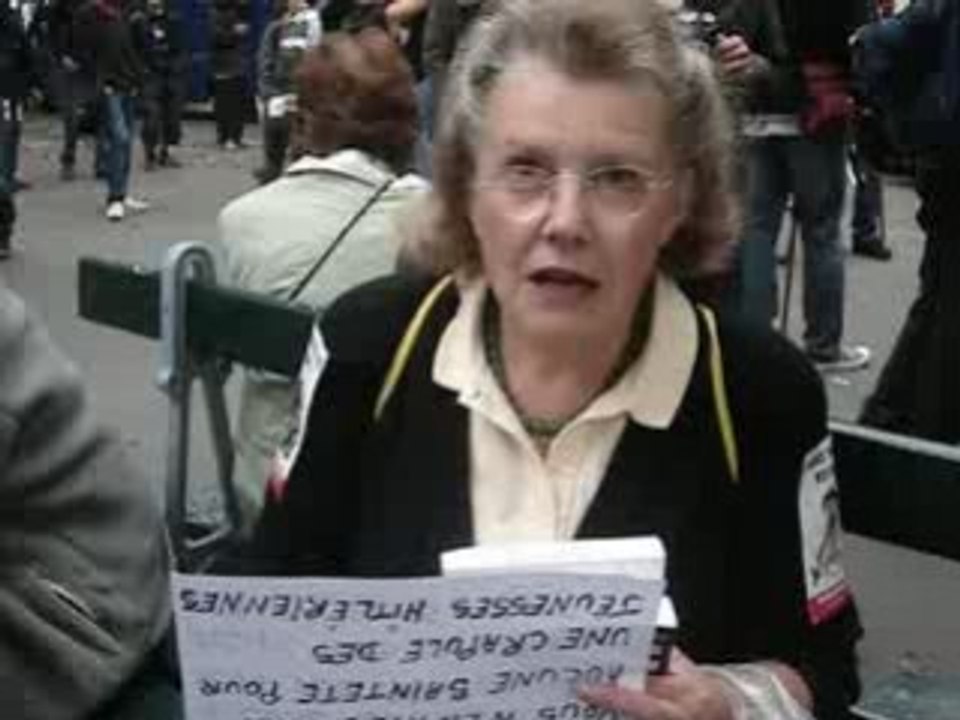 VOUS
AUCUNE SAINTETE POUR
UNE CRAPULE DES
JEUNESSES HITLÉRIENNES